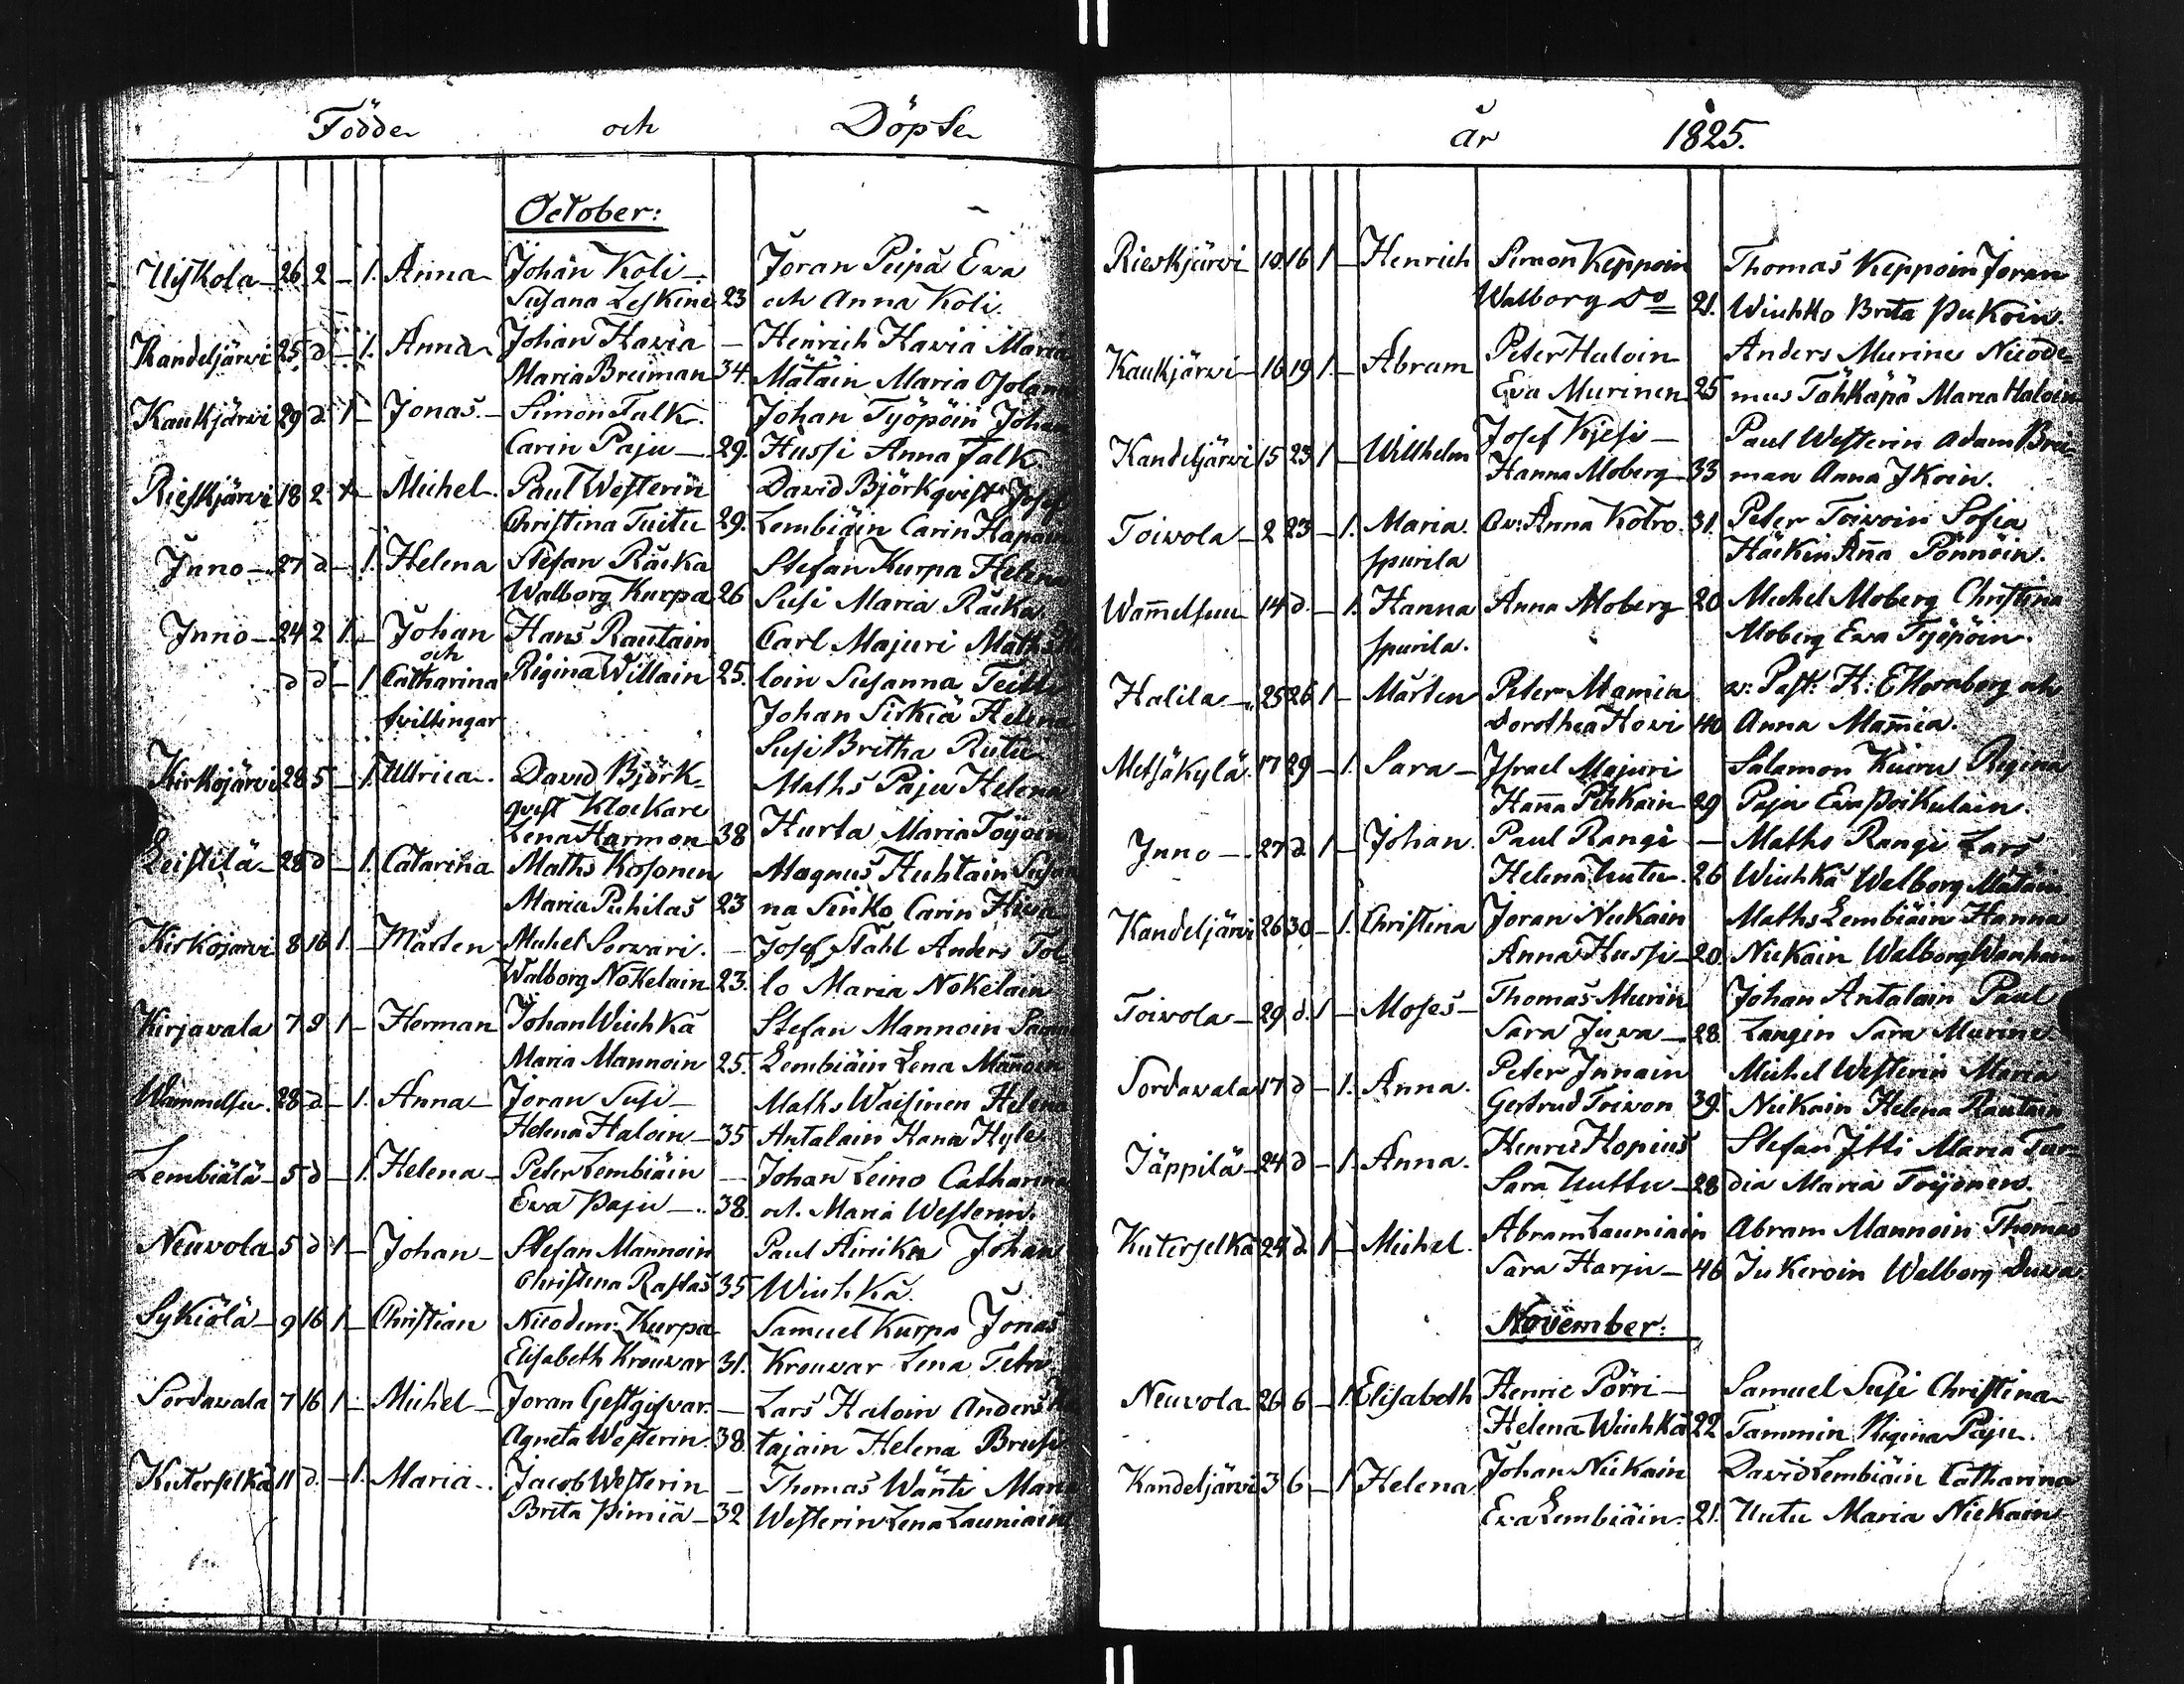 Födde och Döpte
October:
Uiskola 26 2 – 1. Anna Johan Koli – Joran Peipä Eva
Susana Leskine 23 och Anna Koli.
Kandeljärvi 25 d – 1. Anna Johan Havia – Henrich Havia Maria
Maria Breiman 34. Mätäin Maria
Kaukjärvi 29 d. 1 – Jonas. Simon Falk. Johan Työpöin Johan
Carin Paju – 29. Hussi Anna Falk.
Rieskjärvi 18 2 1 – Michel. Paul Westerin David Björkqvist Josef
Christina Tuitu 29. Lembiäin Carin
Inno – 27 d – 1. Helena Stefan Räikä Stefan Kurpa Helena
Walborg Kurpa 26 Susi Maria Räikä
Inno – 24 2 1 – Johan Hans Rautain Carl Majuri Maths
och
d d – 1 Catharina Rigina Willain 25. loin Susanna
tvillingar Johan Sirkiä Helena
Susi Britha Rutu
Kirkojärvi 28 5 – 1. Ulrica. David Björk- Maths Paju Helena
qvist Klockare
Lena Harmon 38 Hurta Maria Toijoin
Leistilä – 28 d – 1. Catarina Maths Kosonen Magnus Huhtain Susan
Maria Puhilas 23 na Sirko Carin
Kirkojärvi 8 16 1 – Mårten Michel Sorvari. – Josef Ståhl Anders Tol
Walborg Nokelain 23. lo Maria Nokelain
Kirjavala 7 9 1 – Herman Johan Wiuhka Stefan Mannoin
Maria Mannoin 25. Lembiäin Lena Mannoin
Wammelsu. 28 d – 1. Anna – Joran Susi – Maths Waisinen Helena
Helena Haloin – 35 Antalain Hana Hyle
Lembiälä – 5 d – 1. Helena – Peter Lembiäin – Johan Leino Catharina
Eva Paju – 38. och Maria Westerin.
Neuvola 5 d 1 – Johan – Stefan Mannoin Paul Airika Johan
Christina Rastas 35 Wiuhka.
Sykiälä – 9 16 1 – Christian Nicodem: Kurpa Samuel Kurpa Jonas
Elisabeth Krouvar 31. Krouvar Lena
Sordavala 7 16 1 – Michel – Joran Gestgifvar. – Lars Haloin Anders
Agneta Westerin. 38. tajain Helena
Kuterselkä 11 d. – 1. Maria.. Jacob Westerin – Thomas Wänti Maria
Brita Pimiä – 32 Westerin Lena Launiain
år 1825.
Rieskjärvi 10 16 1 – Henrich Simon Keppoin Thomas Keppoin Joran
Walborg Do 21. Wiuhko Brita Pukoin.
Kaukjärvi – 16 19 1. – Abram Peter Haloin Anders Murine Nicode-
Eva Murinen 25 mus Tähkäpä Maria Haloin
Kandeljärvi 15 23 1 – Willhelm Josef Kjesi – Paul Westerin Adam Brei-
Hanna Moberg 33 man Anna Ikoin.
Toivola – 2 23 – 1. Maria. Qv: Anna Kotro. 31. Peter Toivoin Sofia
spurila Häikin Anna Pönnöin.
Wammelsuu 14 d. – 1. Hanna Anna Moberg 20 Michel Moberg Christina
spurila. Moberg Eva Työpöin.
Halila – 25 26 1 – Mårten Peter Mamia v: Past: H: E Hornborg och
Dorothea Hovi 40 Anna Mamia.
Metsäkylä. 17 29 – 1. Sara – Israel Majuri Salamon Kuiru Regina
Hanna Pihkain 29 Paju Eva Poikulain.
Inno – 27 d. 1 – Johan. Paul Rangi – Maths Rangi Lars
Helena Uutu. 26 Wiuhka Walborg Mätäin
Kandeljärvi 26 30 – 1. Christina Joran Niekain Maths Lembiäin Hanna
Anna Hussi – 20. Niekain Walborg Wanhain
Toivola – 29 d. 1 – Moses – Thomas Murin Johan Antalain Paul
Sara Juva – 28. Langin Sara Murine.
Sordavala 17 d – 1. Anna. Peter Innain Michel Westerin Maria
Gertrud Toivon 39. Niekain Helena Rautain
Jäppilä – 24 d – 1 Anna. Henric Hopius Stefan Itti Maria Tur-
Sara Uuttu – 28 dia Maria Toijonen.
Kuterselkä 24 d 1 – Michel. Abram Launiain Abram Mannoin Thomas
Sara Harju – 46 Jukeroin Walborg Duva
November:
Neuvola 26 6 – 1. Elisabeth Henric Pörri – Samuel Susi Christina
Helena Wiuhka 22 Tammin Rigina Paju.
Kandeljärvi 3 6 – 1 Helena Johan Niekain David Lembiäin Catharina
Eva Lembiäin. 21. Uutu Maria Niekain